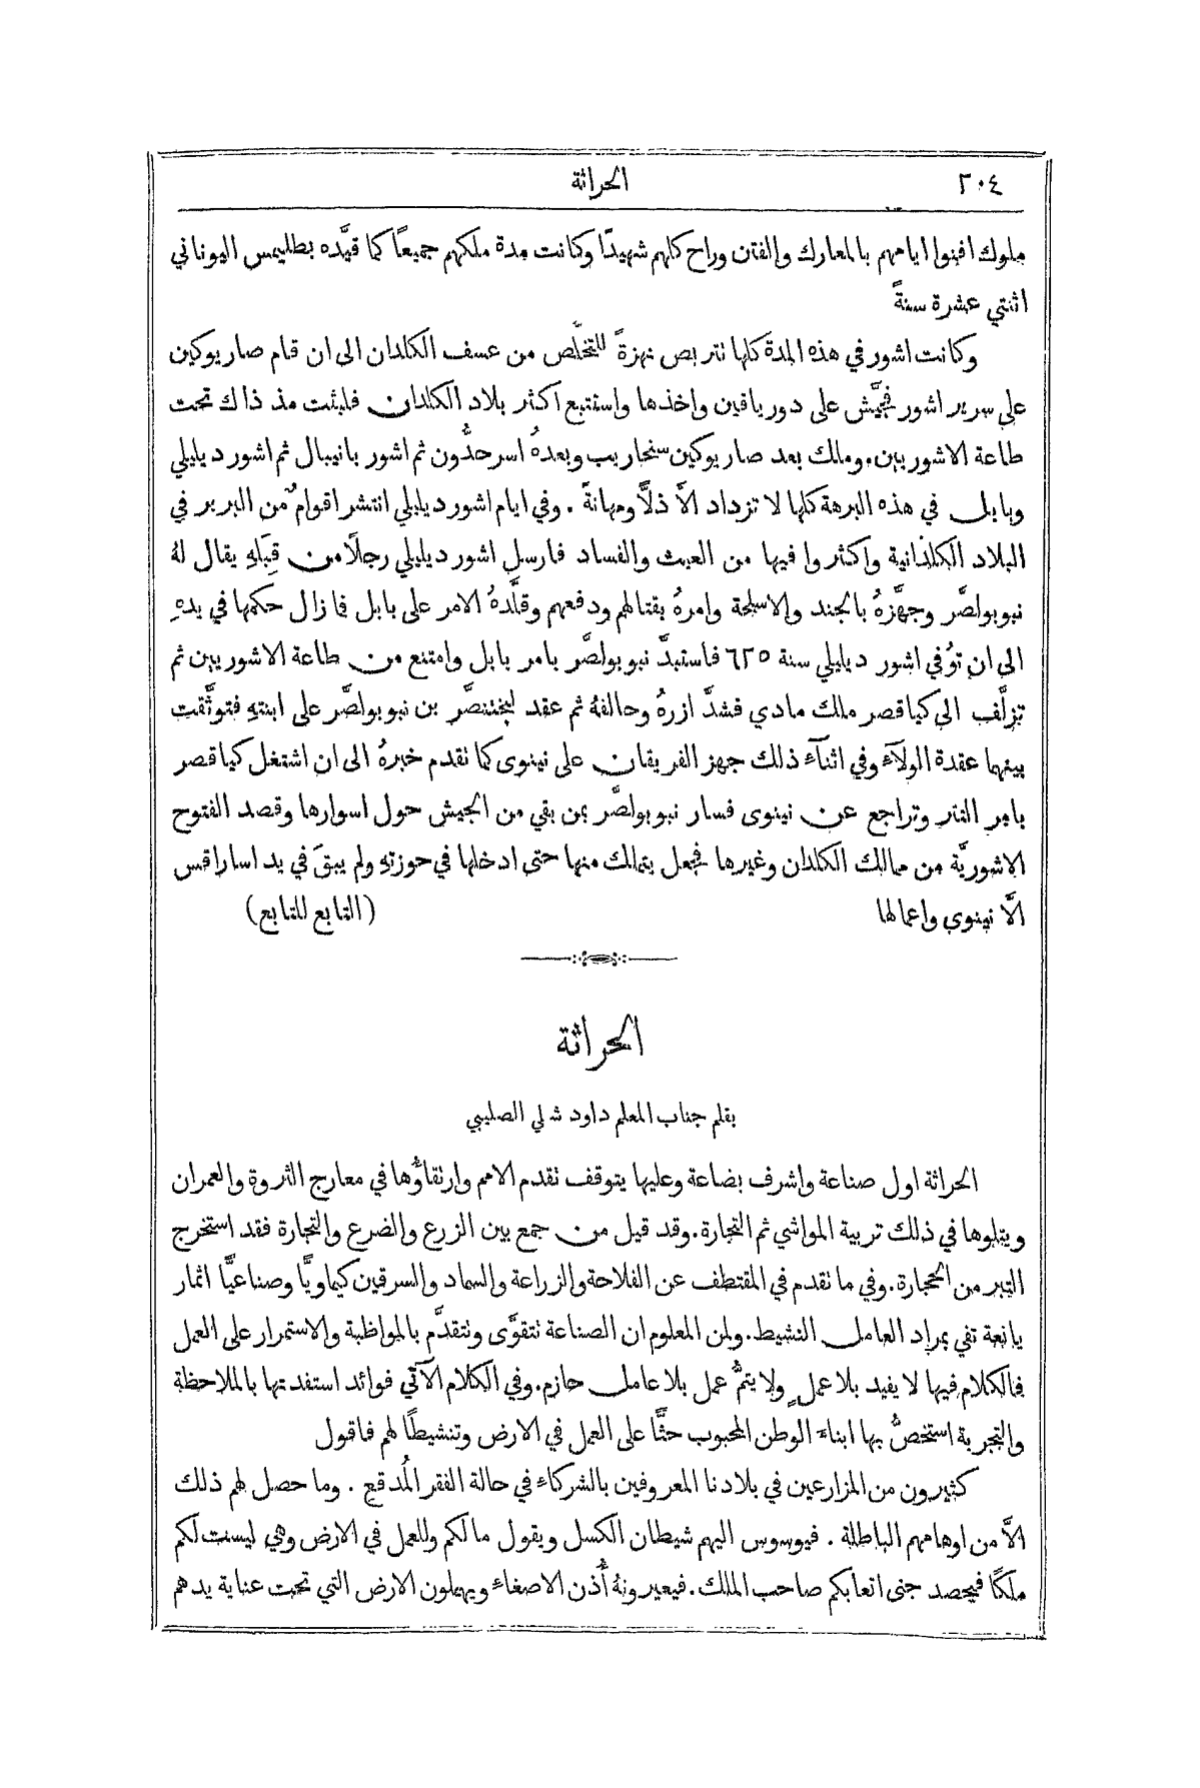 ٣٠٤ الحراثة
ملوك افنوا ايامهم بالمعارك والفتن وراح كلهم شهيدًا وكانت مدة ملكهم جميعًا كما قيَّده بطليمس اليوناني
اثنتي عشرة سنةً
وكانت اشور في هذه المدة كلها تتربص نهزةً للتخلُّص من عسف الكلدان الى ان قام صاريوكين
على سرير اشور فجيَّش على دوريافين واخذها واستتبع اكثر بلاد الكلدان فلبثت مذ ذاك تحت
طاعة الاشوريين. وملك بعد صاريوكين سنحاريب وبعدهُ اسرحدُّون ثم اشور بانيبال ثم اشور ديليلي
وبابل في هذه البرهة كلها لا تزداد الاَّ ذلًّا ومهانةً . وفي ايام اشور ديليلي انتشر اقوامٌ من البربر في
البلاد الكلدانية واكثروا فيها من العبث والفساد فارسل اشور ديليلي رجلًا من قِبَلهِ يقال لهُ
نبوبولصَّر وجهَّزهُ بالجند والاسلحة وامرهُ بقتالهم ودفعهم وقلَّدهُ الامر على بابل فما زال حكمها في يدهِ
الى ان توُفي اشور ديليلي سنة ٦٢٥ فاستبدَّ نبوبولصَّر بامر بابل وامتنع من طاعة الاشوريين ثم
تزلَّف الى كياقصر ملك مادي فشدَّ ازرهُ وحالفهُ ثم عقد لبختنصَّر بن نبوبولصَّر على ابنتهِ فتوثَّقت
بينهما عقدة الولآءَ وفي اثنآءَ ذلك جهز الفريقان على نينوى كما تقدم خبرهُ الى ان اشتغل كياقصر
بامر التتر وتراجع عن نينوى فسار نبوبولصَّر بمن بقي من الجيش حول اسوارها وقصد الفتوح
الاشوريَّة من ممالك الكلدان وغيرها فجعل يتملك منها حتى ادخلها في حوزتهِ ولم يبقَ في يد اساراقس
الاَّ نينوى واعمالها (التابع للتابع)
الحراثة
بقلم جناب المعلم داود شلي الصليبي
الحراثة اول صناعة واشرف بضاعة وعليها يتوقف تقدم الامم وارتقاؤُها في معارج الثروة والعمران
ويتلوها في ذلك تربية المواشي ثم التجارة. وقد قيل من جمع بين الزرع والضرع والتجارة فقد استخرج
التبر من الحجارة. وفي ما تقدم في المقتطف عن الفلاحة والزراعة والسماد والسرقين كيماويًّا وصناعيًّا اثمار
يانعة تفي بمراد العامل النشيط. ولمن المعلوم ان الصناعة تتقوَّى وتتقدَّم بالمواظبة والاستمرار على العمل
فالكلام فيها لا يفيد بلا عملٍ ولا يتمُّ عمل بلا عامل حازم. وفي الكلام الآتي فوائد استفدتها بالملاحظة
والتجربة استخصُّ بها ابناء الوطن المحبوب حثًّا على العمل في الارض وتنشيطًا لهم فاقول
كثيرون من المزارعين في بلادنا المعروفين بالشركاءَ في حالة الفقر المُدقع . وما حصل لهم ذلك
الاَّ من اوهامهم الباطلة . فيوسوس اليهم شيطان الكسل ويقول مالكم وللعمل في الارض وهي ليست لكم
ملكًا فيحصد جنى اتعابكم صاحب الملك. فيعيرونهُ أُذن الاصغاءَ ويهملون الارض التي تحت عناية يدهم